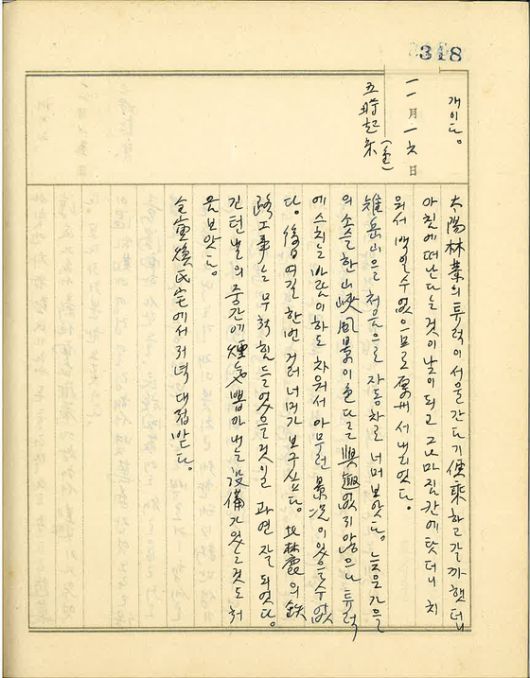 318
개이다.
一一月一六日
(金)
五時起來
太陽林業의 튜럭이 서울 간다기 便乘하고 갈까 했더니
아침에 떠난다는 것이 낮이 되고 그나마 짐칸에 탓더니 치
워서 백일 수 없으므로 原州서 내리었다.
雉岳山을 처음으로 자동차로 너머 보앗다. 늦은 가을
의 소슬한 山峽風景이 색다른 興趣 없지 않으나 튜럭
에 스치는 바람이 하도 차워서 아무런 景況이 있을 수 없
다. 後日 여길 한번 걸어 너머가 보구 싶다. 의 鉄
路工事는 무척 힘드렀을 것인 과연 잘 되었다.
긴 턴낼의 중간에 煙氣 뽑아내는 設備가 있는 것도 처
음 보앗다.
金 煥氏宅에서 저녁 대접 받다.